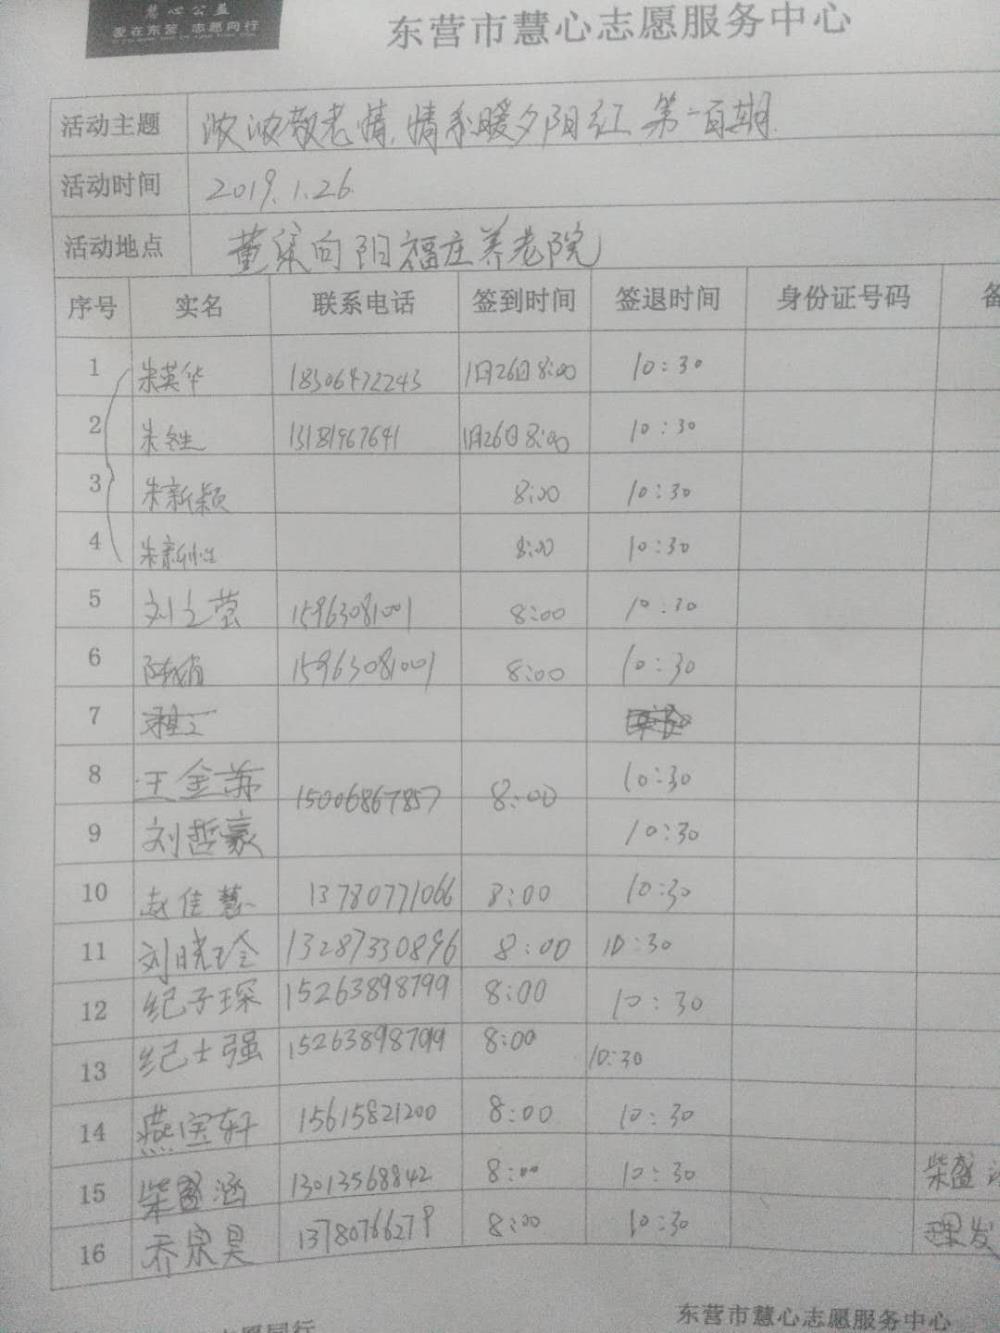 慧心公益
爱在东营 志愿同行
东营市慧心志愿服务中心
活动主题 浓浓敬老情,情系暖夕阳红 第一百期
活动时间 2019.1.26
活动地点 董集向阳福庄养老院
序号 实名 联系电话 签到时间 签退时间 身份证号码 备
1 朱英华 18306472243 1月26日8:00 10:30
2 朱 13181967641 1月26日8:00 10:30
3 朱新颖 8:00 10:30
4 朱新 8:00 10:30
5 刘文莹 15963081001 8:00 10:30
6 陈 15963081001 8:00 10:30
7
8 王金 15006867857 8:00 10:30
9 刘哲豪 10:30
10 赵佳慧 13780771066 8:00 10:30
11 刘晓玲 13287330896 8:00 10:30
12 纪子琛 15263898799 8:00 10:30
13 纪士强 15263898799 8:00 10:30
14 燕宝轩 15615821200 8:00 10:30
15 柴盛涵 13013568842 8:00 10:30 柴盛
16 乔宗昊 13780766279 8:00 10:30 理发
志愿同行
东营市慧心志愿服务中心